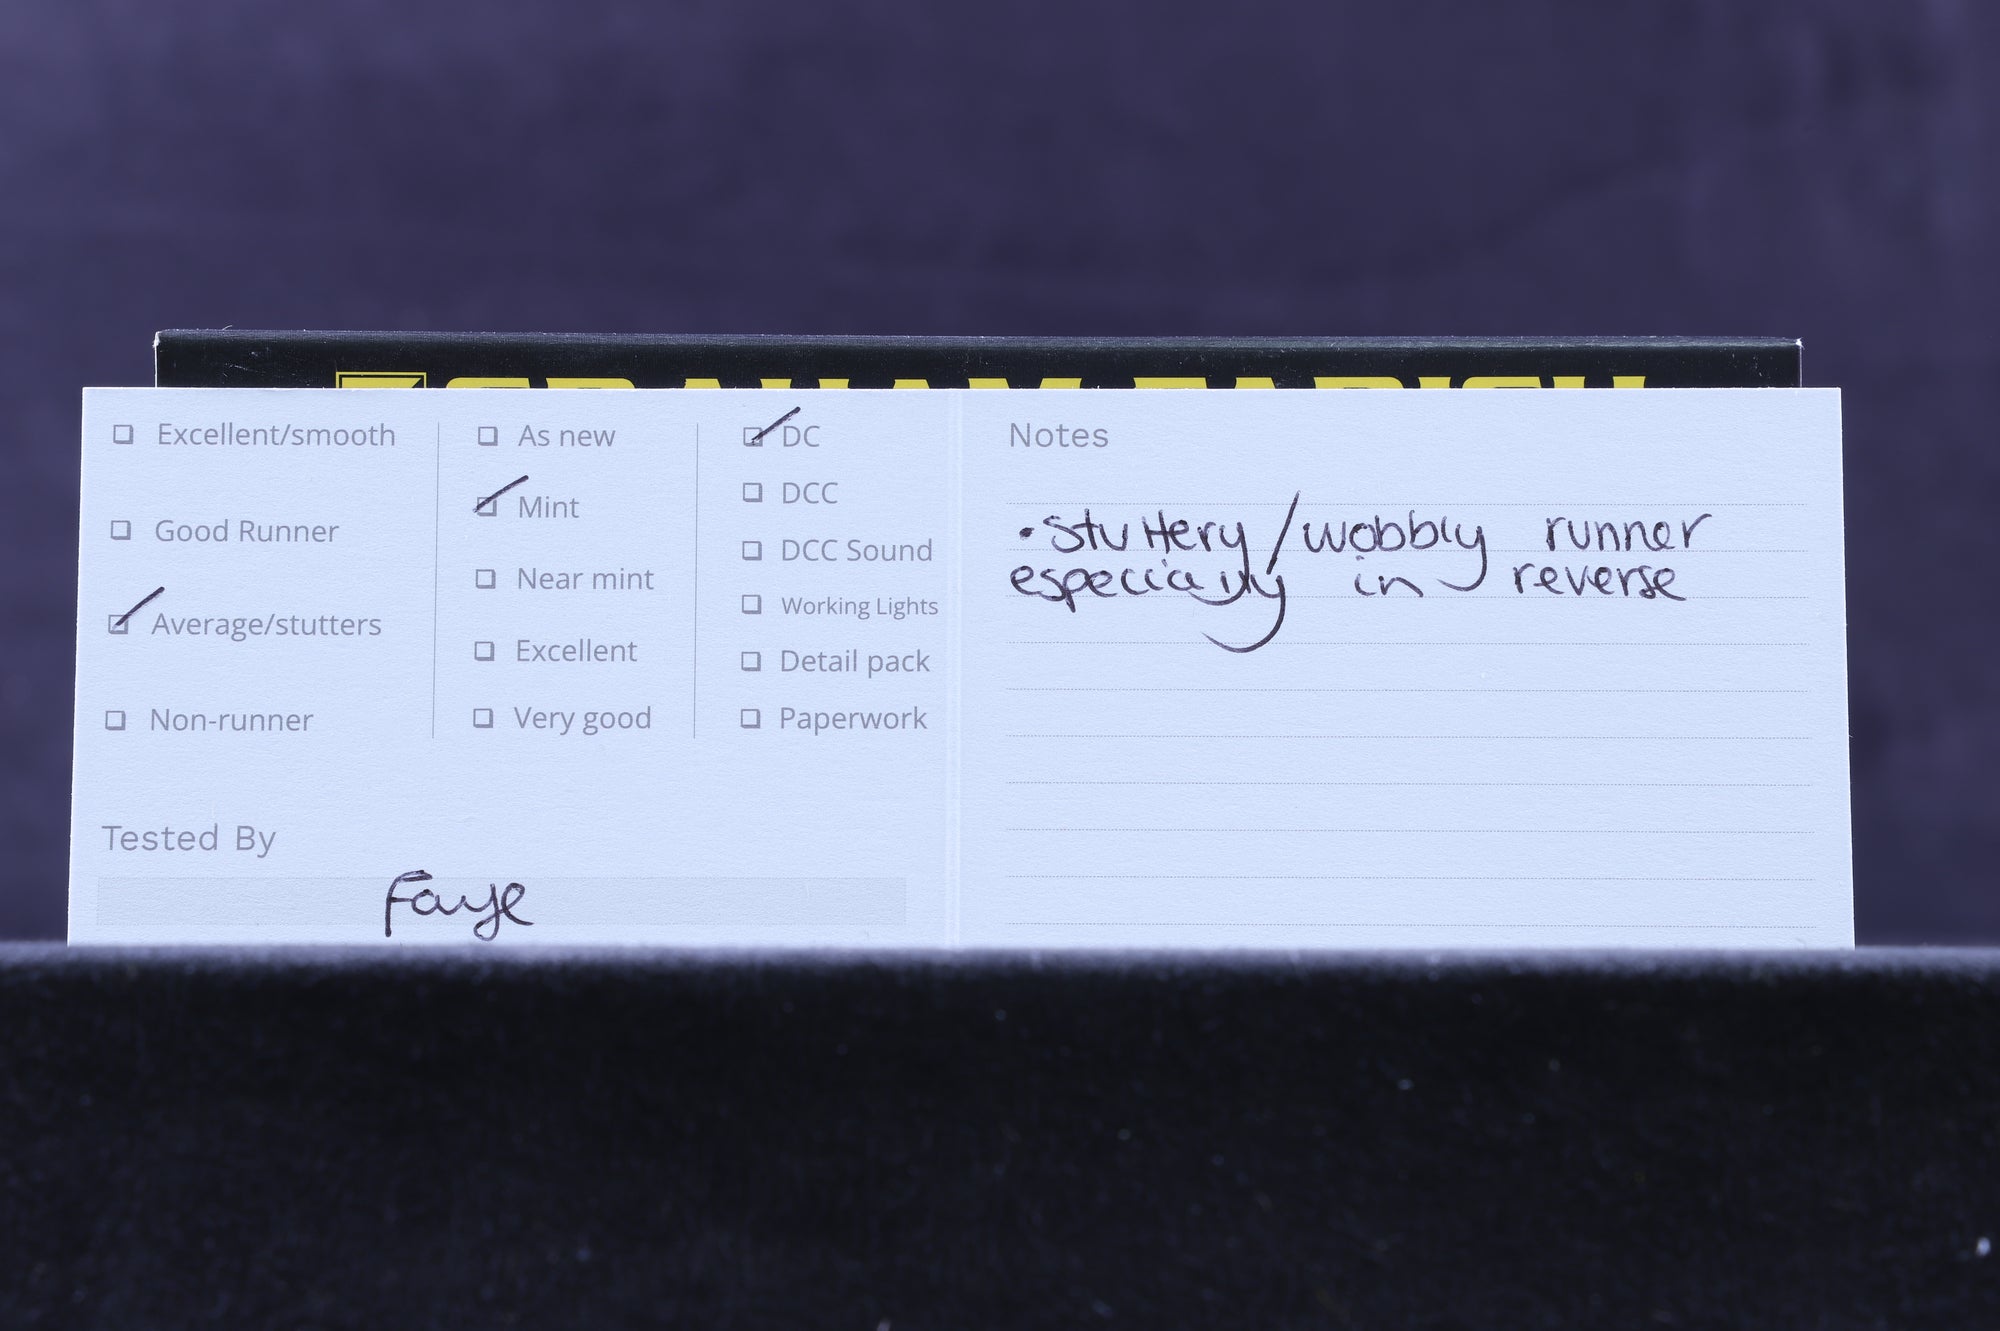 GRAHAM FARISH
Excellent/smooth
Good Runner
Average/stutters
Non-runner
As new
Mint
Near mint
Excellent
Very good
DC
DCC
DCC Sound
Working Lights
Detail pack
Paperwork
Tested By
Faye
Notes
• Stuttery/wobbly runner
especially in reverse